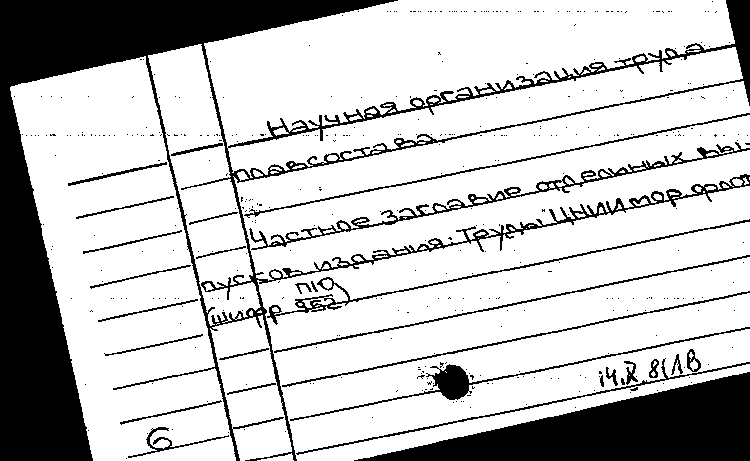 Научная организация труда
плавсостава.
Частное заглавие отдельных вы-
пусков издания: Труды ЦНИИ мор. флот
(шифр П10
962)
14.X.81 ЛВ
6